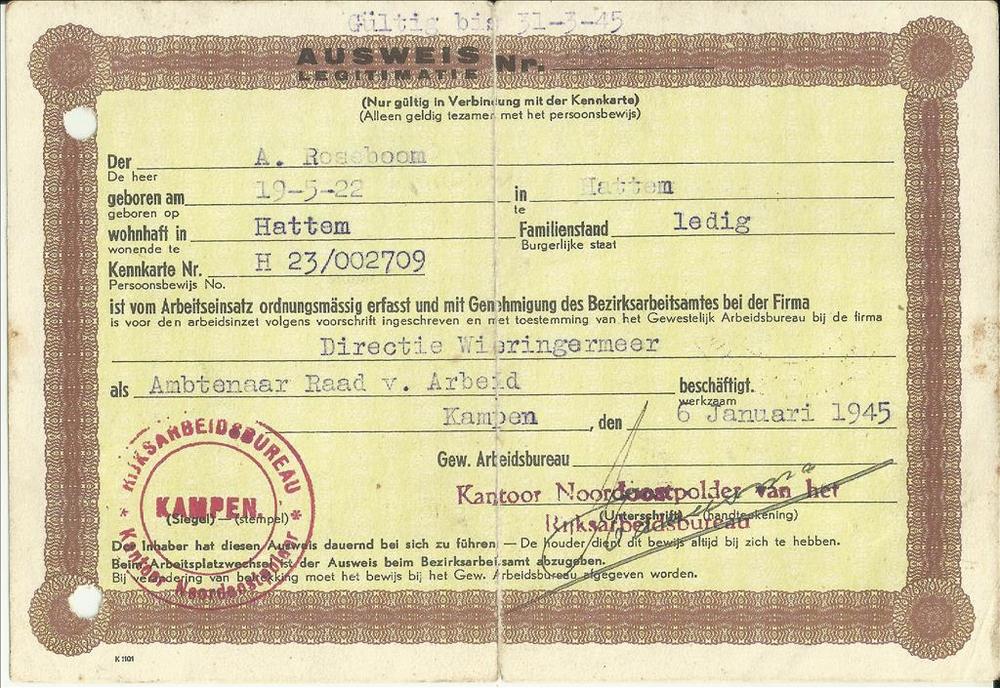 Gültig bis 31-3-45
AUSWEIS Nr.
LEGITIMATIE
(Nur gültig in Verbindung mit der Kennkarte)
(Alleen geldig tezamen met het persoonsbewijs)
Der A. Roseboom
De heer
geboren am 19-5-22 in Hattem
geboren op te
wohnhaft in Hattem Familienstand ledig
wonende te Burgerlijke staat
Kennkarte Nr. H 23/002709
Persoonsbewijs No.
ist vom Arbeitseinsatz ordnungsmässig erfasst und mit Genehmigung des Bezirksarbeitsamtes bei der Firma
is voor den arbeidsinzet volgens voorschrift ingeschreven en met toestemming van het Gewestelijk Arbeidsbureau bij de firma
Directie Wieringermeer
als Ambtenaar Raad v. Arbeid beschäftigt.
werkzaam
Kampen, den 6 Januari 1945
Gew. Arbeidsbureau
Kantoor Noordoostpolder van het
(Unterschrift) (handteekening)
Rijksarbeidsbureau
RIJKSARBEIDSBUREAU
KAMPEN.
(Siegel) — (stempel)
* Kantoor Noordoostpolder *
Der Inhaber hat diesen Ausweis dauernd bei sich zu führen — De houder dient dit bewijs altijd bij zich te hebben.
Beim Arbeitsplatzwechsel ist der Ausweis beim Bezirksarbeitsamt abzugeben.
Bij verandering van betrekking moet het bewijs bij het Gew. Arbeidsbureau afgegeven worden.
K 1101